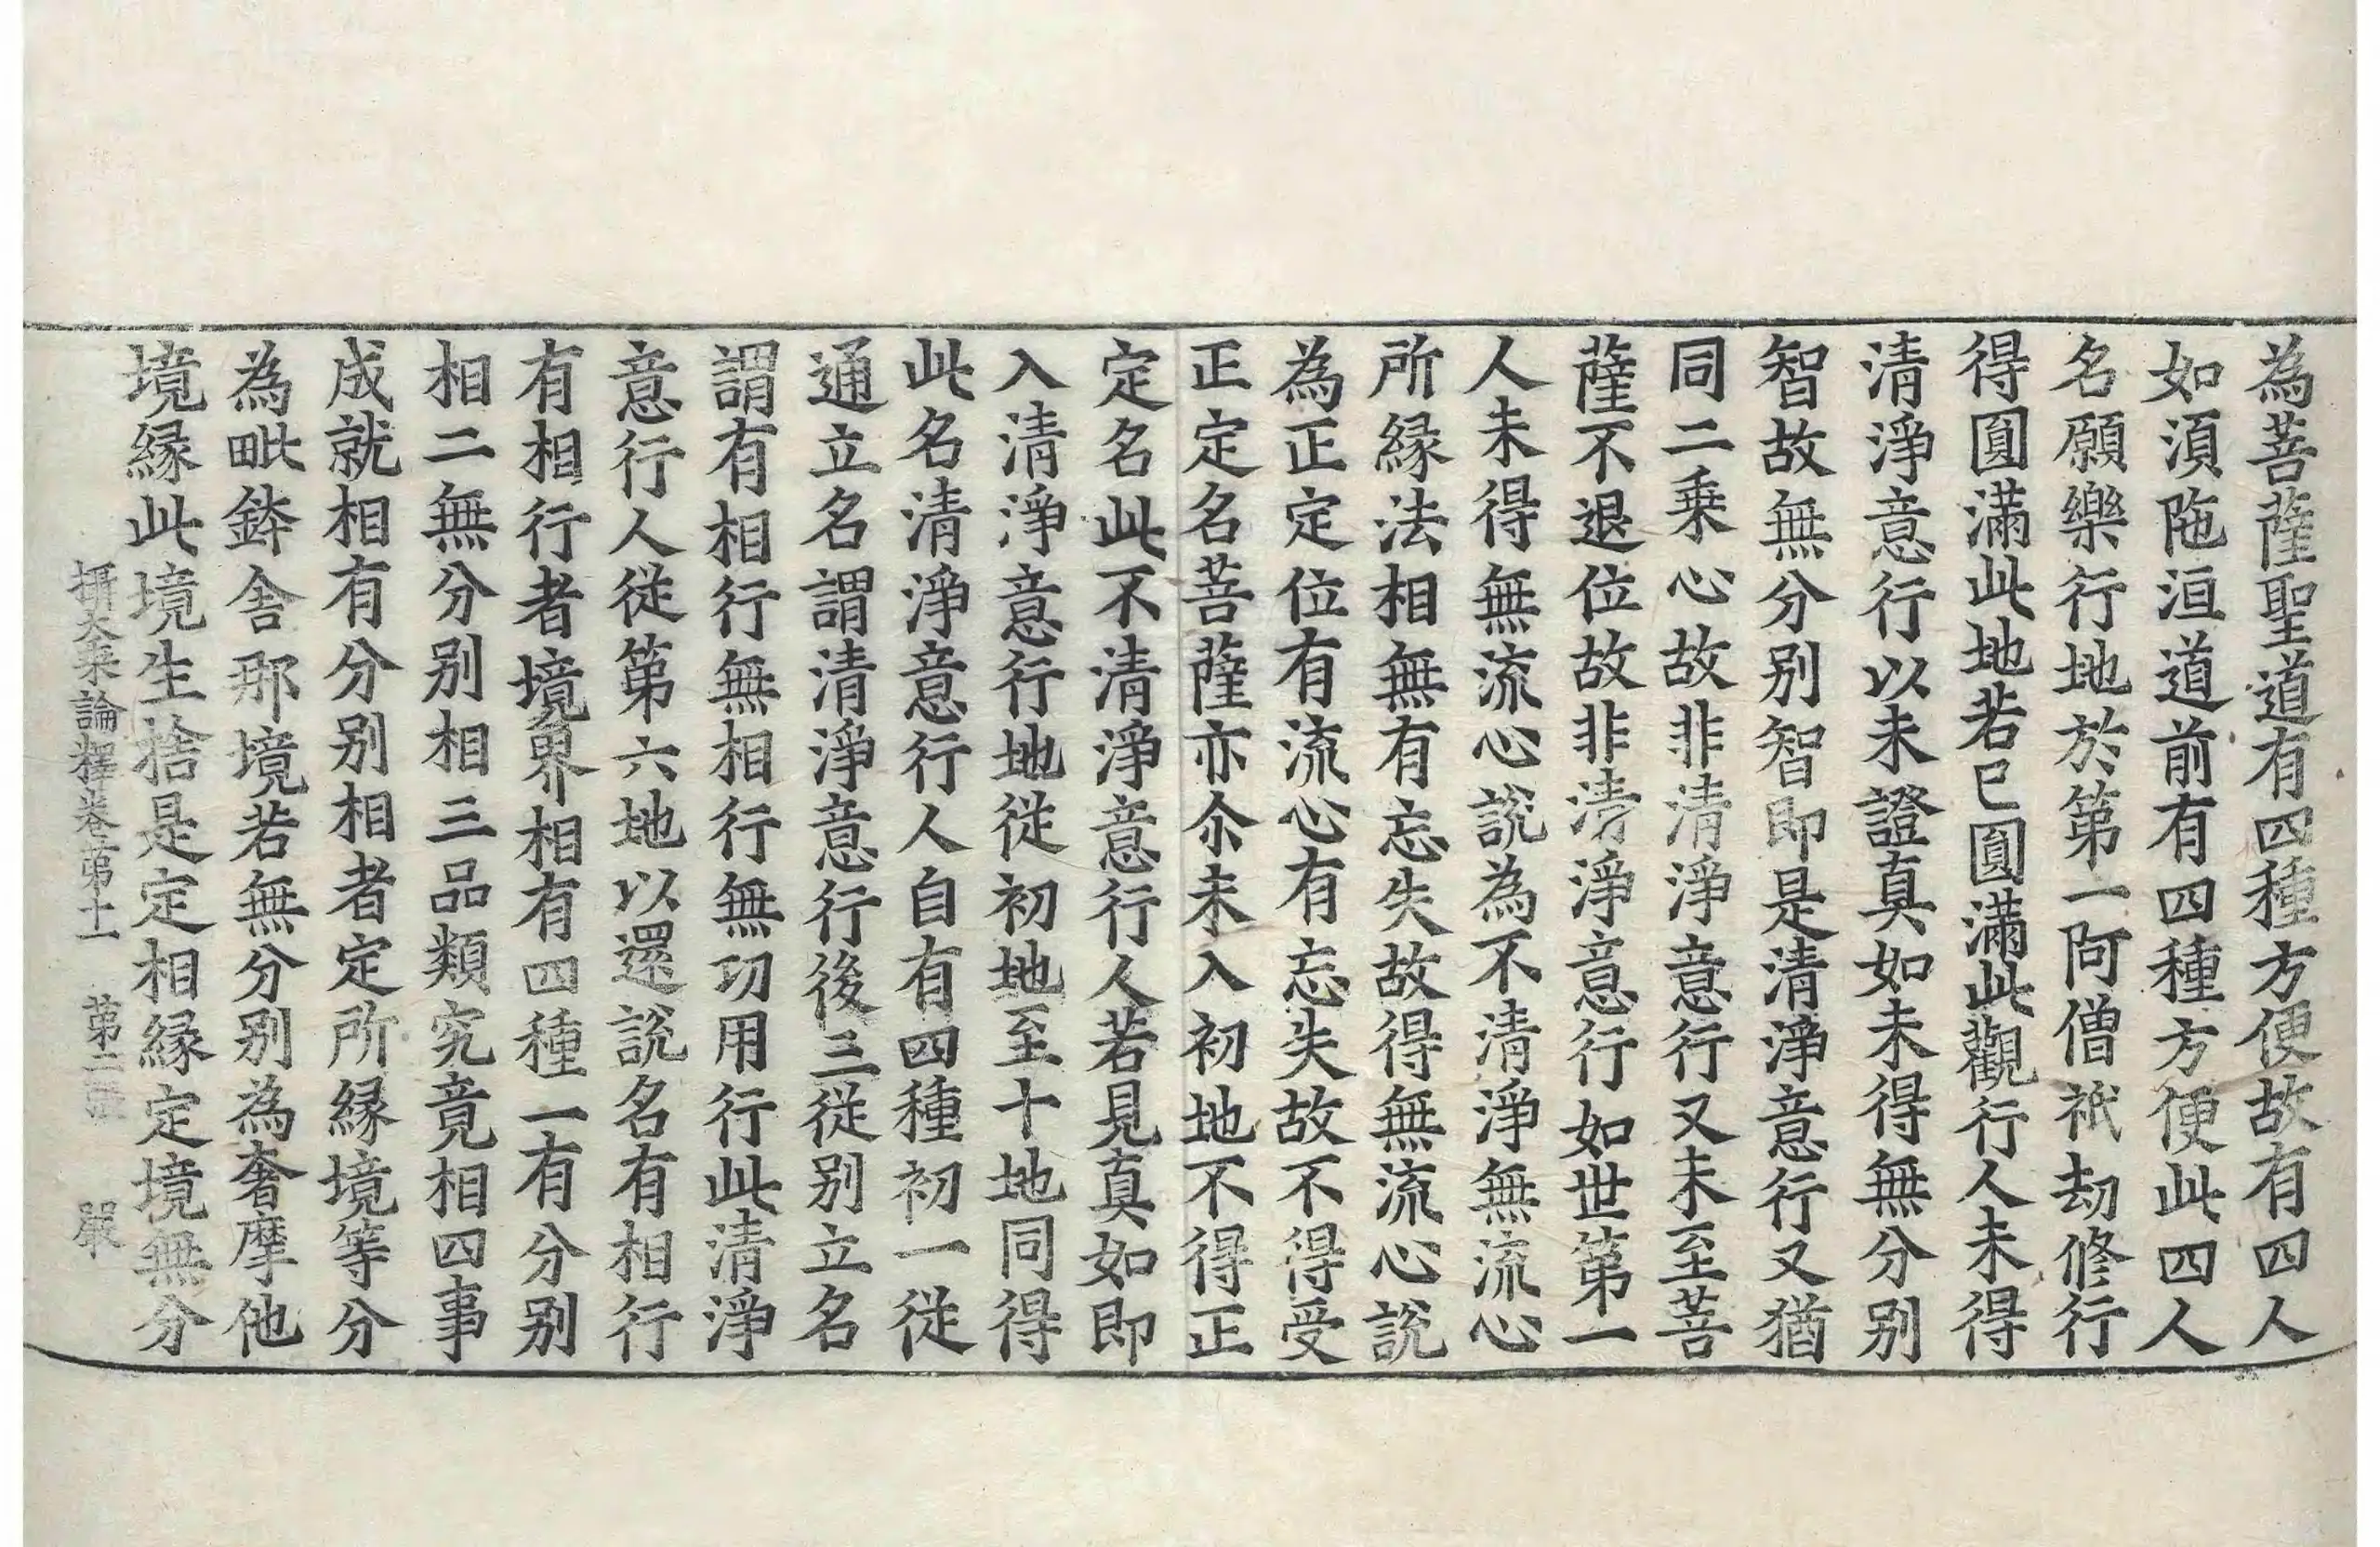 為菩薩聖道有四種方便故有四人
如湏陁洹道前有四種方便此四人
名願樂行地於第一阿僧祇劫修行
得圓滿此地若已圓滿此觀行人未得
清淨意行以未證真如未得無分別
智故無分別智即是清淨意行又猶
同二乗心故非清淨意行又未至菩
薩不退位故非清淨意行如世第一
人未得無流心說為不清淨無流心
所縁法相無有忘失故得無流心說
為正定位有流心有忘失故不得受
正定名菩薩亦尒未入初地不得正
定名此不清淨意行人若見真如即
入清淨意行地從初地至十地同得
此名清淨意行人自有四種初一從
通立名謂清淨意行後三從別立名
謂有相行無相行無功用行此清淨
意行人從第六地以還說名有相行
有相行者境界相有四種一有分別
相二無分別相三品類究竟相四事
成就相有分別相者定所縁境等分
為毗鉢舍那境若無分別為奢摩他
境縁此境生捨是定相縁定境無分
攝大乗論釋卷苐十一 苐二張 嚴